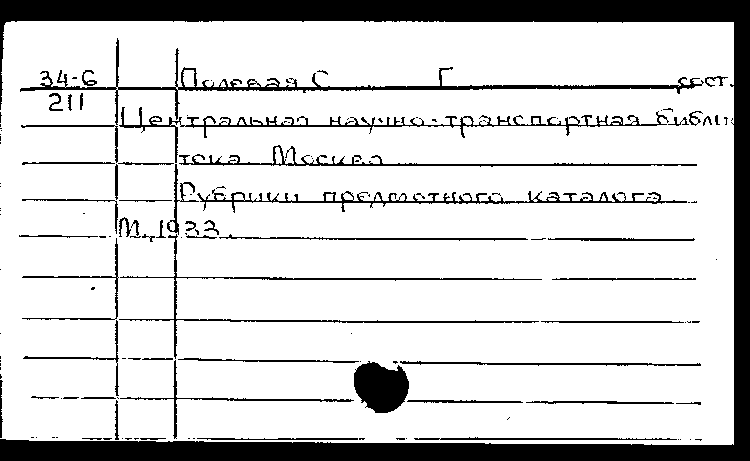 34-6 Полевая, С Г сост.
211
Центральная научно-транспортная библио
тека. Москва
Рубрики предметного каталога
М., 1933.